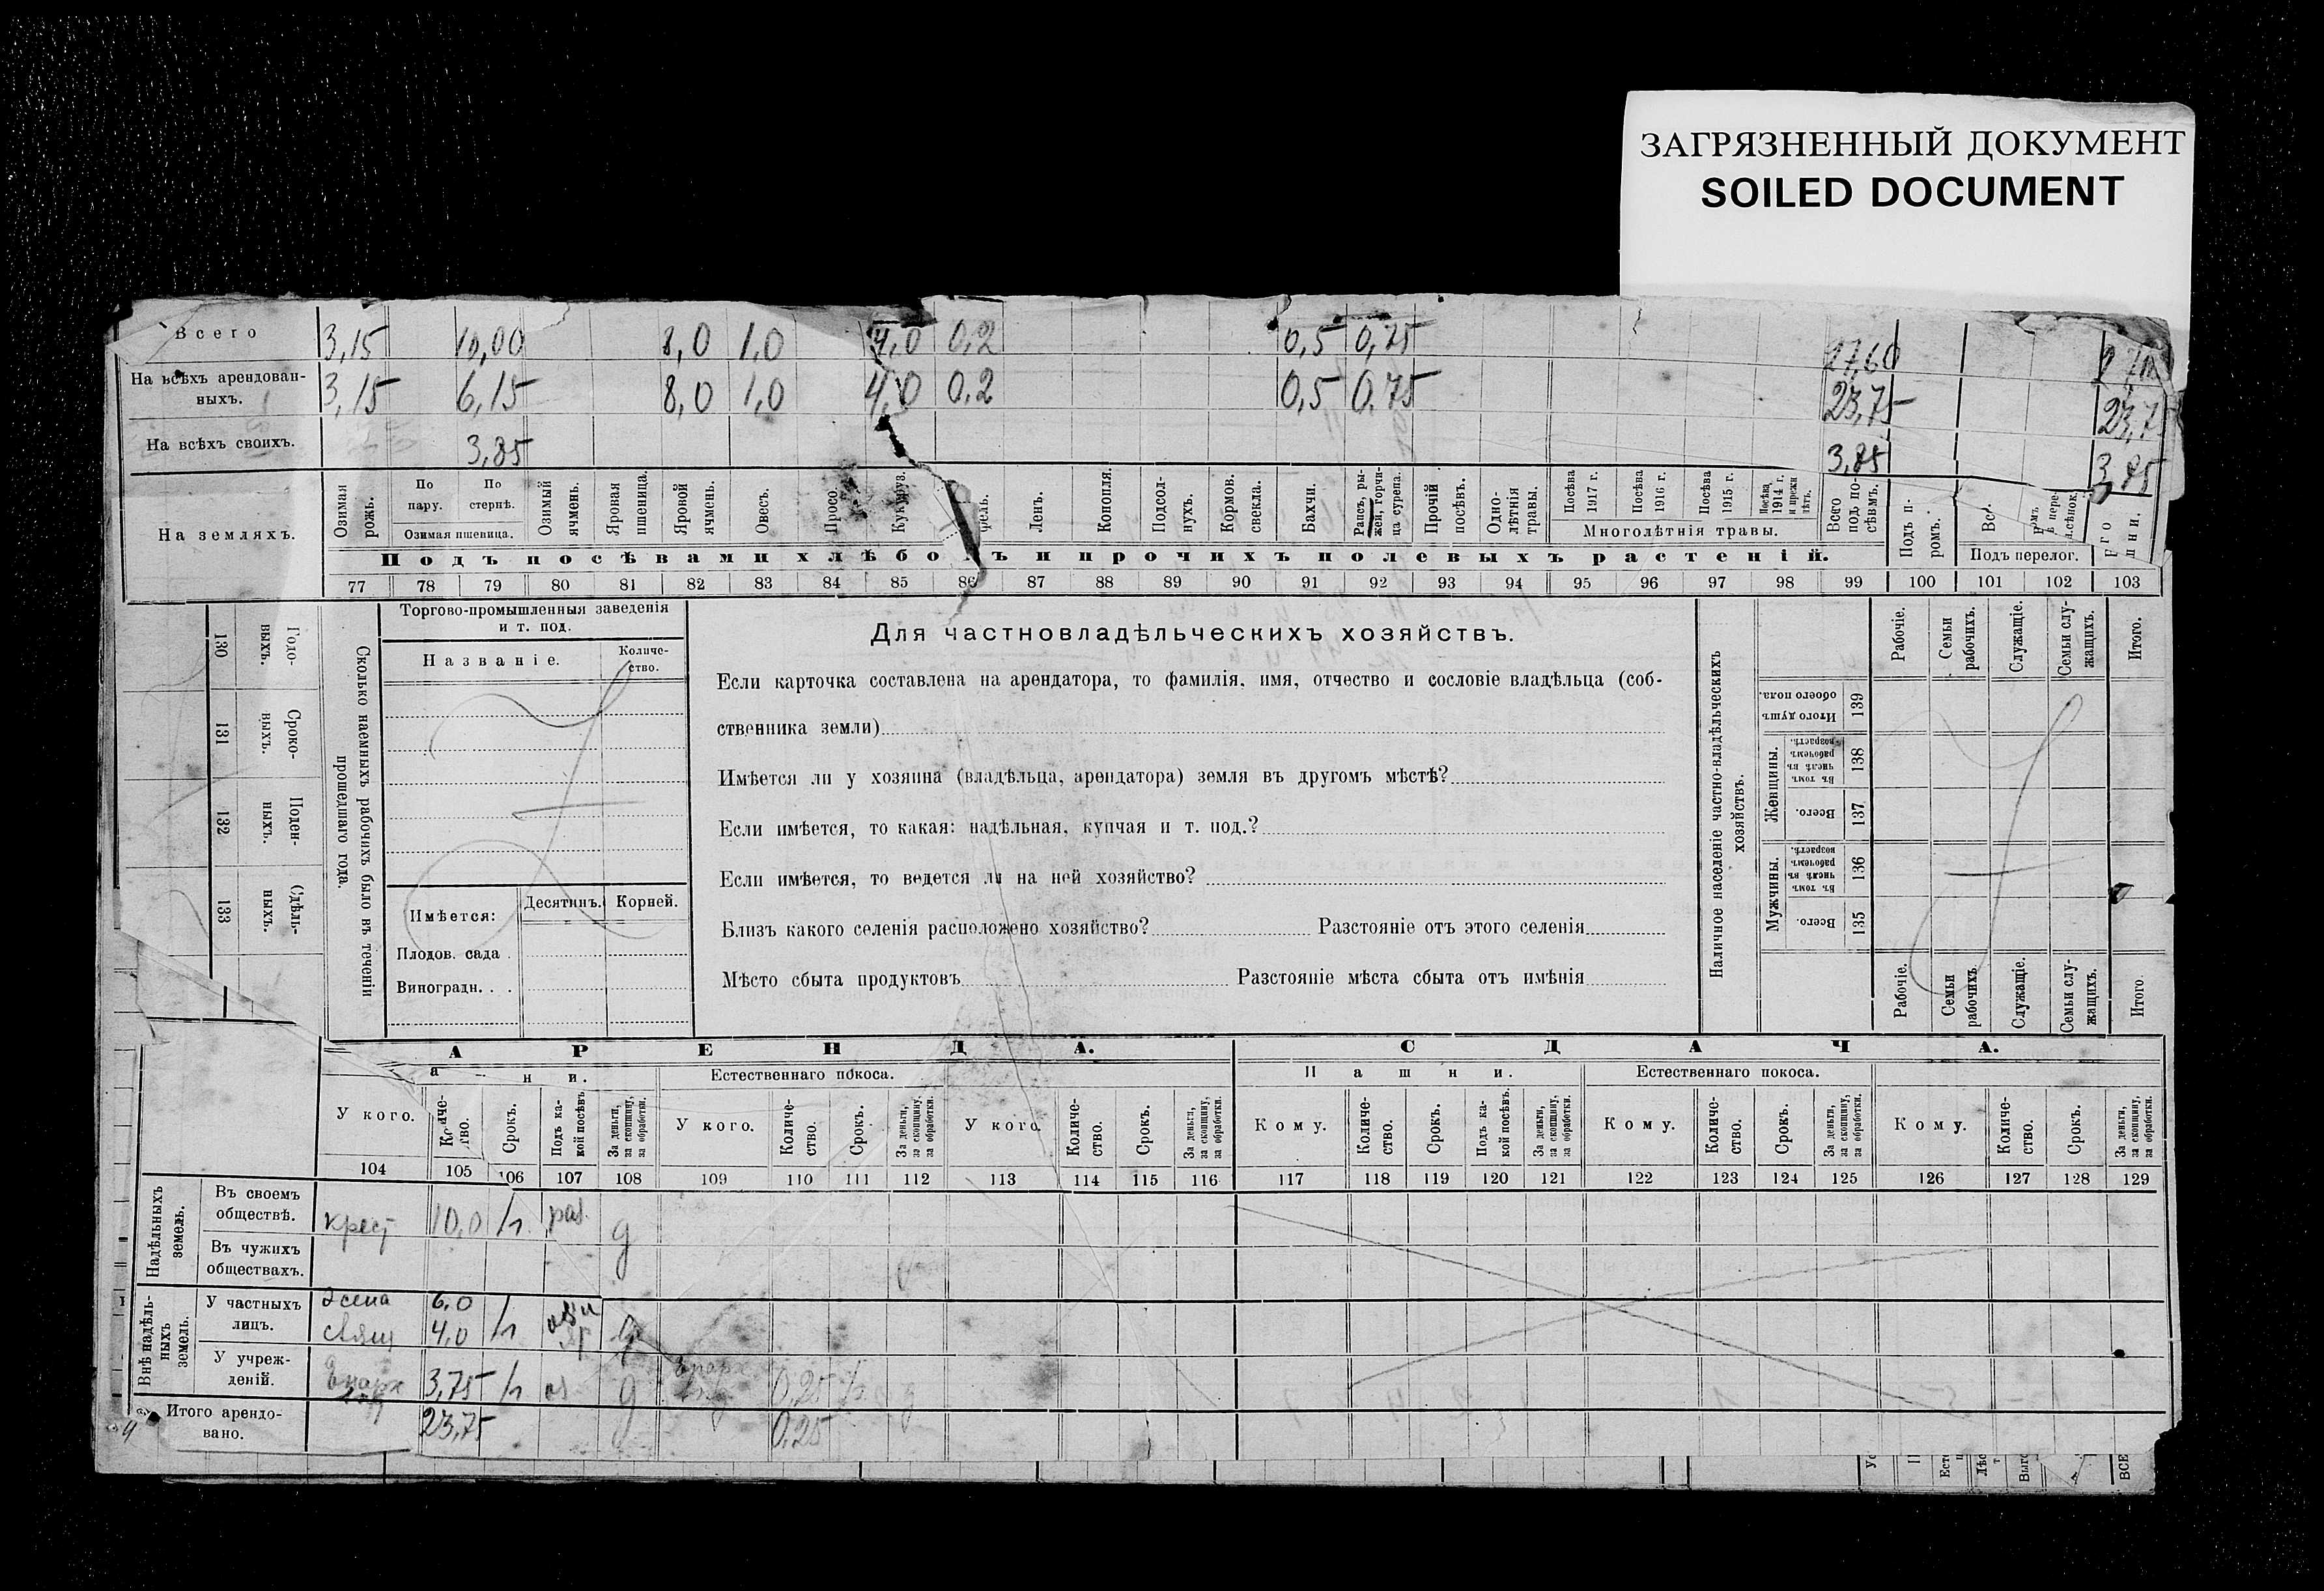 ЗАГРЯЗНЕННЫЙ ДОКУМЕНТ
SOILED DOCUMENT
Всего 3,15 10,00 8,0 1,0 4,0 0,2 0,5 0,75 27,60
На всѣхъ арендован-
ныхъ. 3,15 6,15 8,0 1,0 4,0 0,2 0,5 0,75 23,75 23,7
На всѣхъ своихъ. 3,85 3,85 3,85
На земляхъ.
Озимая рожь.
По пару.
По стернѣ.
Озимая пшеница.
Озимый ячмень.
Яровая пшеница.
Яровой ячмень.
Овесъ.
Просо.
Кукуруз.
Ленъ.
Конопля.
Подсол-
нухъ.
Кормов. свекла.
Бахчи.
Рапсъ, ры-
жей, горчи-
ца сурепа.
Прочій посѣвъ.
Одно-
лѣтнія травы.
Посѣва 1917 г.
Посѣва 1916 г.
Посѣва 1915 г.
Посѣва 1914 г. и прежн лѣтъ.
Многолѣтнія травы.
Всего под по-
сѣвмъ.
Подъ перелог.
Подъ посѣвами хлѣбо ъ и прочихъ полевыхъ растеній.
77 78 79 80 81 82 83 84 85 86 87 88 89 90 91 92 93 94 95 96 97 98 99 100 101 102 103
130 Годо-
выхъ.
131 Сроко-
выхъ.
132 Поден-
ныхъ.
133 Сдѣль-
ныхъ.
Сколько наемныхъ рабочихъ было въ теченіи
прошедшаго года.
Торгово-промышленныя заведенія
и т. под.
Названіе. Количе-
ство.
Имѣется: Десятинъ. Корней.
Плодов. сада .
Виноградн. . .
Для частновладѣльческихъ хозяйствъ.
Если карточка составлена на арендатора, то фамилія, имя, отчество и сословіе владѣльца (соб-
ственника земли)
Имѣется ли у хозяина (владѣльца, арендатора) земля въ другомъ мѣстѣ?
Если имѣется, то какая: надѣльная, купчая и т. под.?
Если имѣется, то ведется ли на ней хозяйство?
Близъ какого селенія расположено хозяйство? Разстояніе отъ этого селенія
Мѣсто сбыта продуктовъ Разстояніе мѣста сбыта отъ имѣнія
Наличное населеніе частно-владѣльческихъ
хозяйствъ.
Рабочіе. Семьи рабочихъ. Служащіе. Семьи слу-
жащихъ. Итого.
Итого душъ обоего пола. 139
Женщины. Въ томъ числѣ въ рабочемъ возрастѣ. 138
Всего. 137
Мужчины. Въ томъ числѣ въ рабочемъ возрастѣ. 136
Всего. 135
Рабочіе. Семьи рабочихъ. Служащіе. Семьи слу-
жащихъ. Итого
АРЕНДА. СДАЧА.
а н и. Естественнаго покоса. Пашни. Естественнаго покоса.
У кого. Количе-
ство. Срокъ. Подъ ка-
кой посѣвъ. За деньги, за скопщину, за обработки.
У кого. Количе-
ство. Срокъ. За деньги, за скопщину, за обработки.
У кого. Количе-
ство. Срокъ. За деньги, за скопщину, за обработки.
Кому. Количе-
ство. Срокъ. Подъ ка-
кой посѣвъ. За деньги, за скопщину, за обработки.
Кому. Количе-
ство. Срокъ. За деньги, за скопщину, за обработки.
Кому. Количе-
ство. Срокъ. За деньги, за скопщину, за обработки.
104 105 106 107 108 109 110 111 112 113 114 115 116 117 118 119 120 121 122 123 124 125 126 127 128 129
Надѣльныхъ земель.
Въ своемъ
обществѣ. крест 10,0 раз. д
Въ чужихъ
обществахъ.
Внѣ надѣль-
ныхъ земель.
У частныхъ
лицъ. 6,0
свящ 4,0
У учреж-
деній. 3,75 д 0,25 д
Итого арендо-
вано. 23,75 0,25